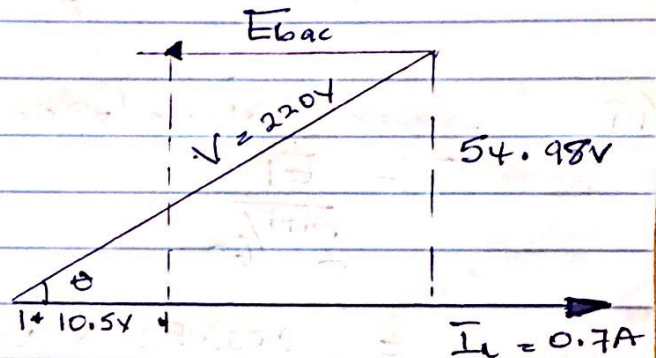 Ebac
V = 220V
54.98V
θ
10.5V
IL = 0.7A